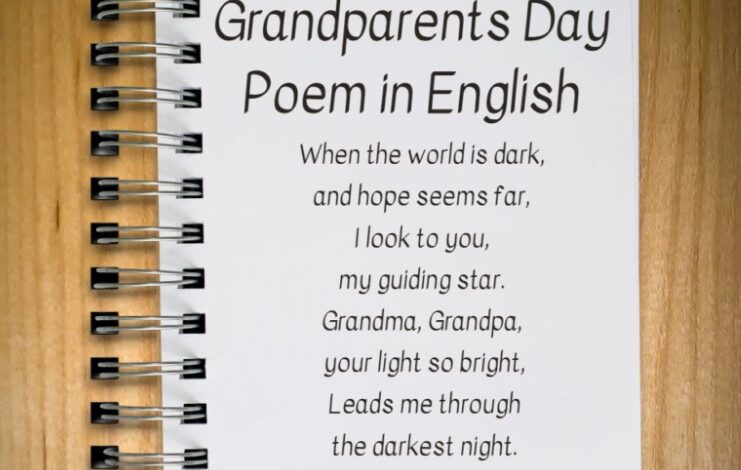 Grandparents Day
Poem in English
When the world is dark,
and hope seems far,
I look to you,
my guiding star.
Grandma, Grandpa,
your light so bright,
Leads me through
the darkest night.